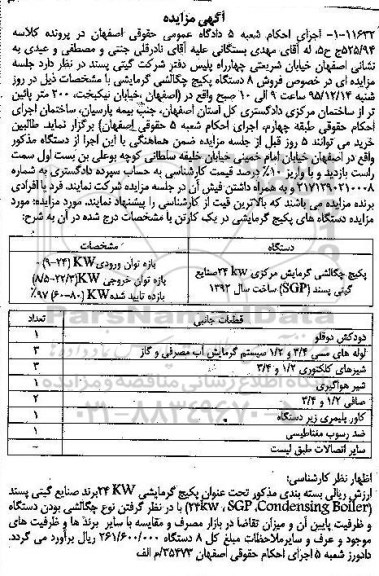 آگهی مزایده
۱-۱۱۶۳۲- اجرای احکام شعبه ۵ دادگاه عمومی حقوقی اصفهان در پرونده کلاسه
۵۲۵/۹۴ج ح۵، له آقای مهدی بستگانی علیه آقای نادرقلی جنتی و مصطفی و عیدی به
نشانی اصفهان خیابان شریعتی چهارراه پلیس دفتر شرکت گیتی پسند در نظر دارد جلسه
مزایده ای در خصوص فروش ۸ دستگاه پکیج چگالشی گرمایشی با مشخصات ذیل در روز
شنبه ۹۵/۱۲/۱۴ ساعت ۹ الی ۱۰ صبح واقع در (اصفهان، خیابان نیکبخت، ۲۰۰ متر پائین
تر از ساختمان مرکزی دادگستری کل استان اصفهان، جنب بیمه پارسیان، ساختمان اجرای
احکام حقوقی طبقه چهارم، اجرای احکام شعبه ۵ حقوقی اصفهان) برگزار نماید. طالبین
خرید می توانند ۵ روز قبل از جلسه مزایده ضمن هماهنگی با این اجرا از دستگاه مذکور
واقع در اصفهان خیابان امام خمینی خیابان خلیفه سلطانی کوچه بوعلی بن بست اول سمت
راست بازدید و با واریز ۱۰٪ درصد قیمت کارشناسی به حساب سپرده دادگستری به شماره
۲۱۷۱۲۹۰۲۱۰۰۰۸ و به همراه داشتن فیش آن در جلسه مزایده شرکت نمایند. فرد یا افرادی
برنده مزایده می باشند که بالاترین قیمت از کارشناسی را پیشنهاد نمایند. مورد مزایده: مورد
مزایده دستگاه های پکیج گرمایشی در یک کارتن با مشخصات درج شده در آن به شرح:
دستگاه مشخصات
پکیج چگالشی گرمایش مرکزی ۲۴ kw صنایع گیتی پسند (SGP) ساخت سال ۱۳۹۲
بازه توان ورودی KW (۲۴-۹)
بازه توان خروجی KW (۲۲/۳-۸/۵)
بازده تایید شده KW (۸۰-۶۰) ۹۷٪
قطعات جانبی تعداد
دودکش دوقلو ۱
لوله های مسی ۳/۴ و ۱/۲ سیستم گرمایش آب مصرفی و گاز ۳
شیرهای کلکتوری ۱/۲ و ۳/۴ ۳
شیر هواگیری ۱
صافی ۱/۲ و ۳/۴ ۲
کاور پلیمری زیر دستگاه ۱
ضد رسوب مغناطیسی ۱
سایر اتصالات طبق لیست -
اظهار نظر کارشناسی:
ارزش ریالی بسته بندی مذکور تحت عنوان پکیج گرمایشی ۲۴ KW برند صنایع گیتی پسند
(۲۴kw ، SGP ،Condensing Boiler) با در نظر گرفتن نوع چگالشی بودن دستگاه
و ظرفیت پایین آن و میزان تقاضا در بازار مصرف و مقایسه با سایر برند ها و ظرفیت های
موجود و عرف و سایرملاحظات مبلغ کل ۸ دستگاه ۲۶۱/۶۰۰/۰۰۰ ریال برآورد می گردد.
دادورز شعبه ۵ اجرای احکام حقوقی اصفهان ۳۵۴۷۳/م الف
ParsNamadData
۰۲۱-۸۸۳۴۹۶۷۰